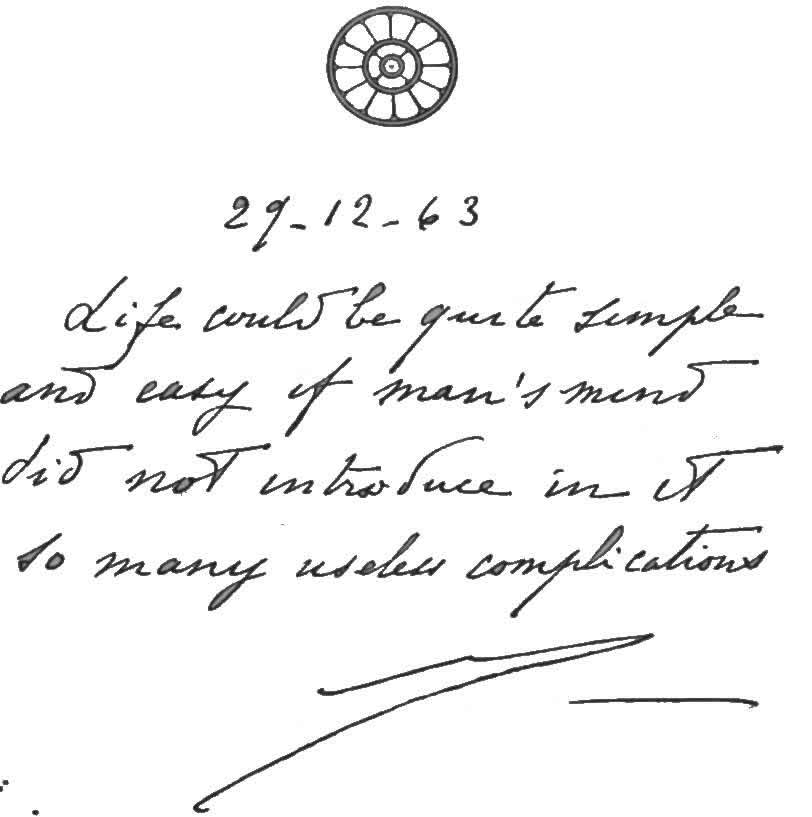 29-12-63
Life could be quite simple
and easy if man's mind
did not introduce in it
so many useless complications